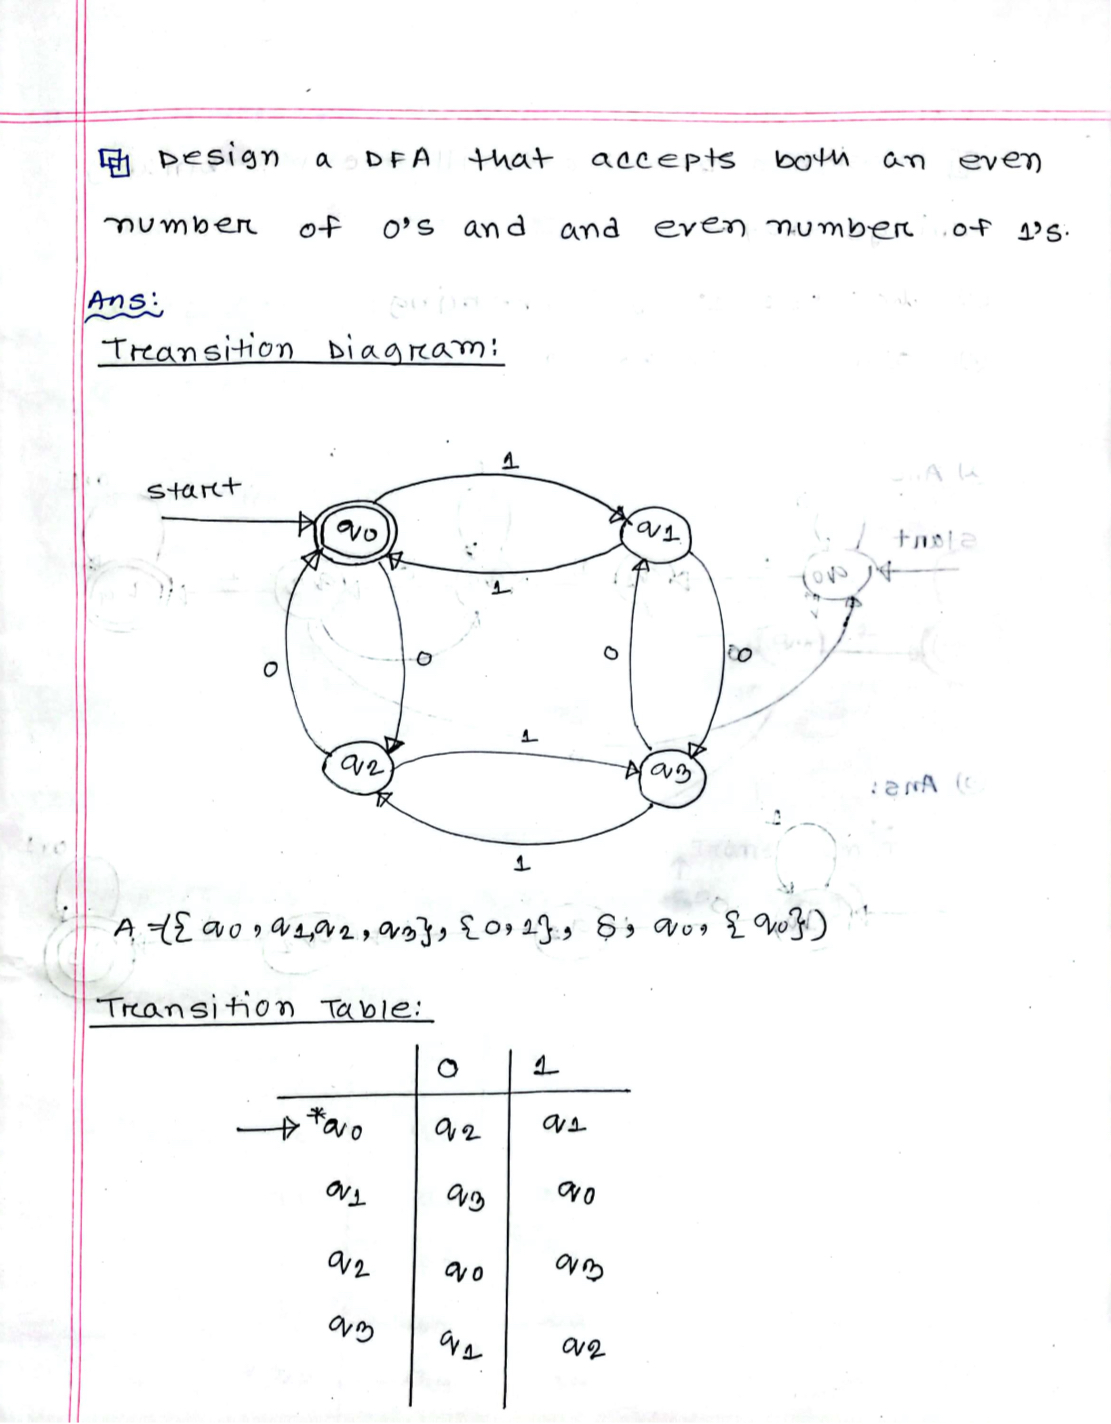 Design a DFA that accepts both an even
number of 0's and and even number of 1's.
Ans:
Transition Diagram:
1
start
q0
q1
1
0
0
0
0
1
q2
q3
1
A = ({q0, q1, q2, q3}, {0, 1}, δ, q0, {q0})
Transition Table:
0 1
→ *q0 q2 q1
q1 q3 q0
q2 q0 q3
q3 q1 q2